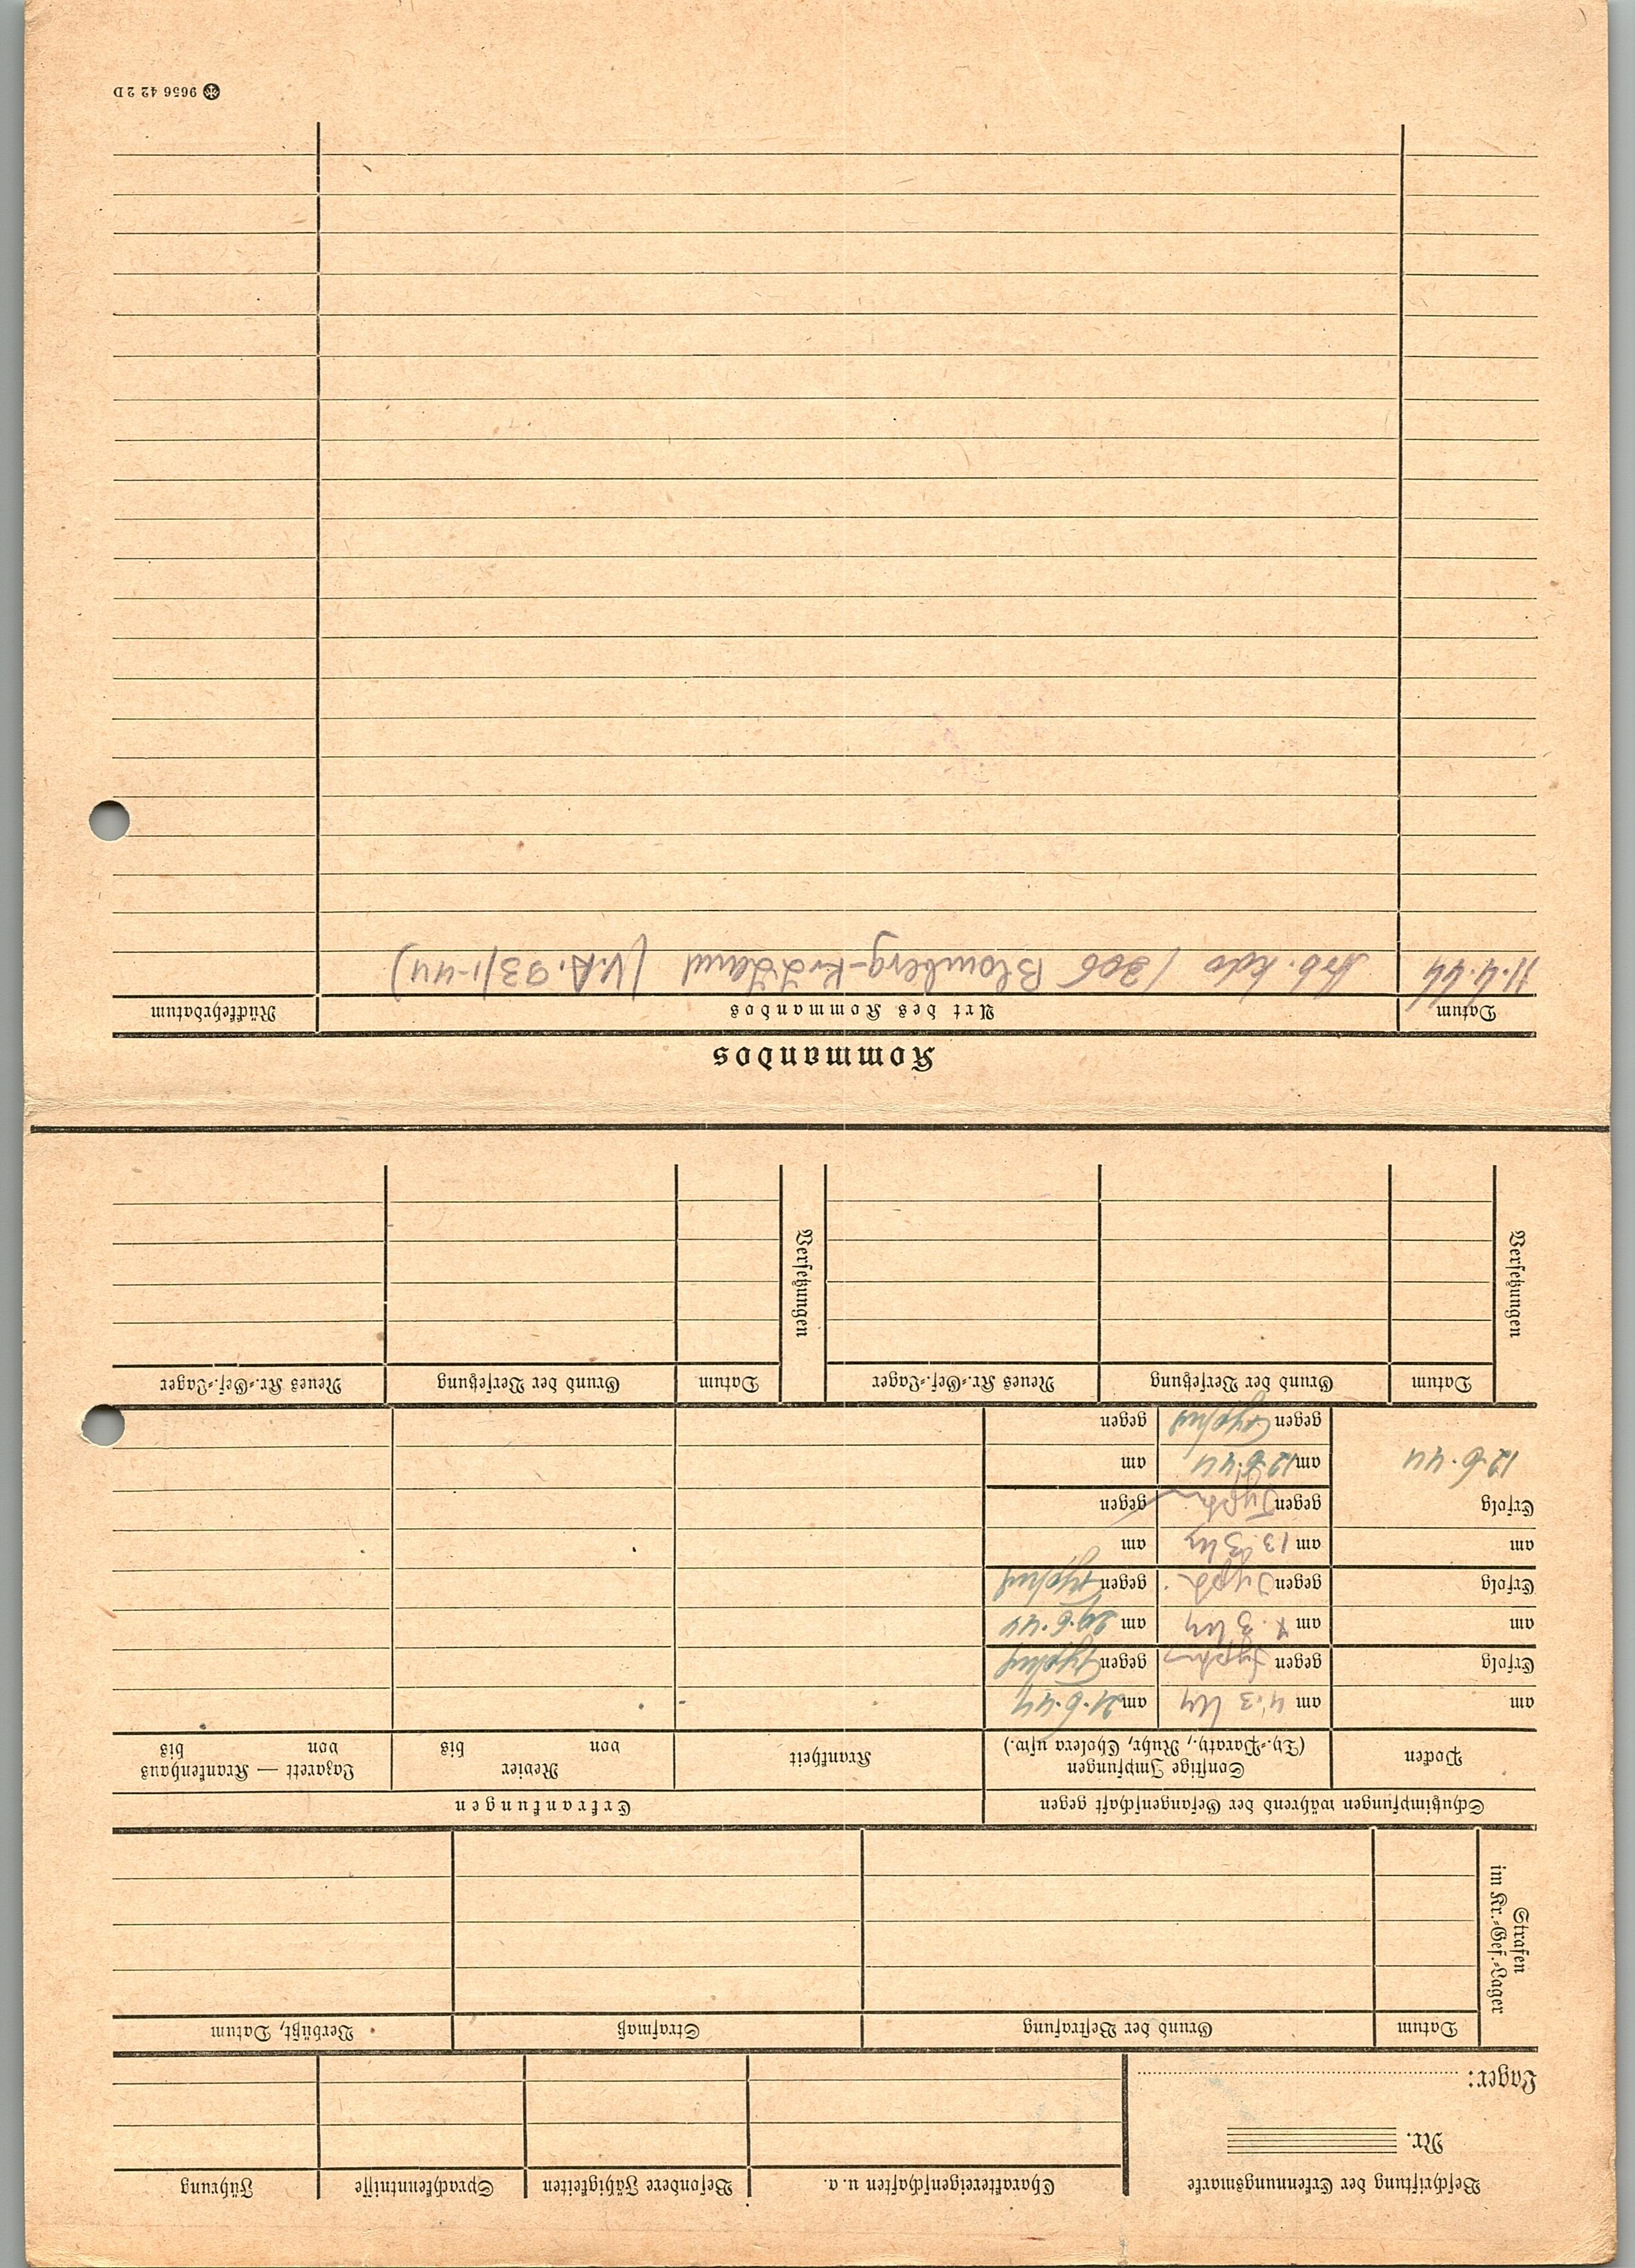 Beschriftung der Erkennungsmarke
Nr.
Lager:
Charaktereigenschaften u. a.
Besondere Fähigkeiten
Sprachkenntnisse
Führung
Strafen
im Kr.=Gef.=Lager
Datum
Grund der Bestrafung
Strafmaß
Verbüßt, Datum
Schutzimpfungen während der Gefangenschaft gegen
Erkrankungen
Pocken
Sonstige Impfungen
(Ty.=Paraty., Ruhr, Cholera usw.)
Krankheit
Revier
von bis
Lazarett — Krankenhaus
von bis
am
am 4.3
am 21.6.44
Erfolg
gegen
gegen Typhus
am
am
am 29.6.44
Erfolg
gegen
gegen Typhus
am
am 13.3
am
Erfolg
gegen
gegen
12.6.44
am 12.6.44
am
gegen Typhus
gegen
Versetzungen
Datum
Grund der Versetzung
Neues Kr.=Gef.=Lager
Versetzungen
Datum
Grund der Versetzung
Neues Kr.=Gef.=Lager
Kommandos
Datum
Art des Kommandos
Rückkehrdatum
11.4.44 Arb. Kdo 1206 Blomberg-
9656 42 2 D